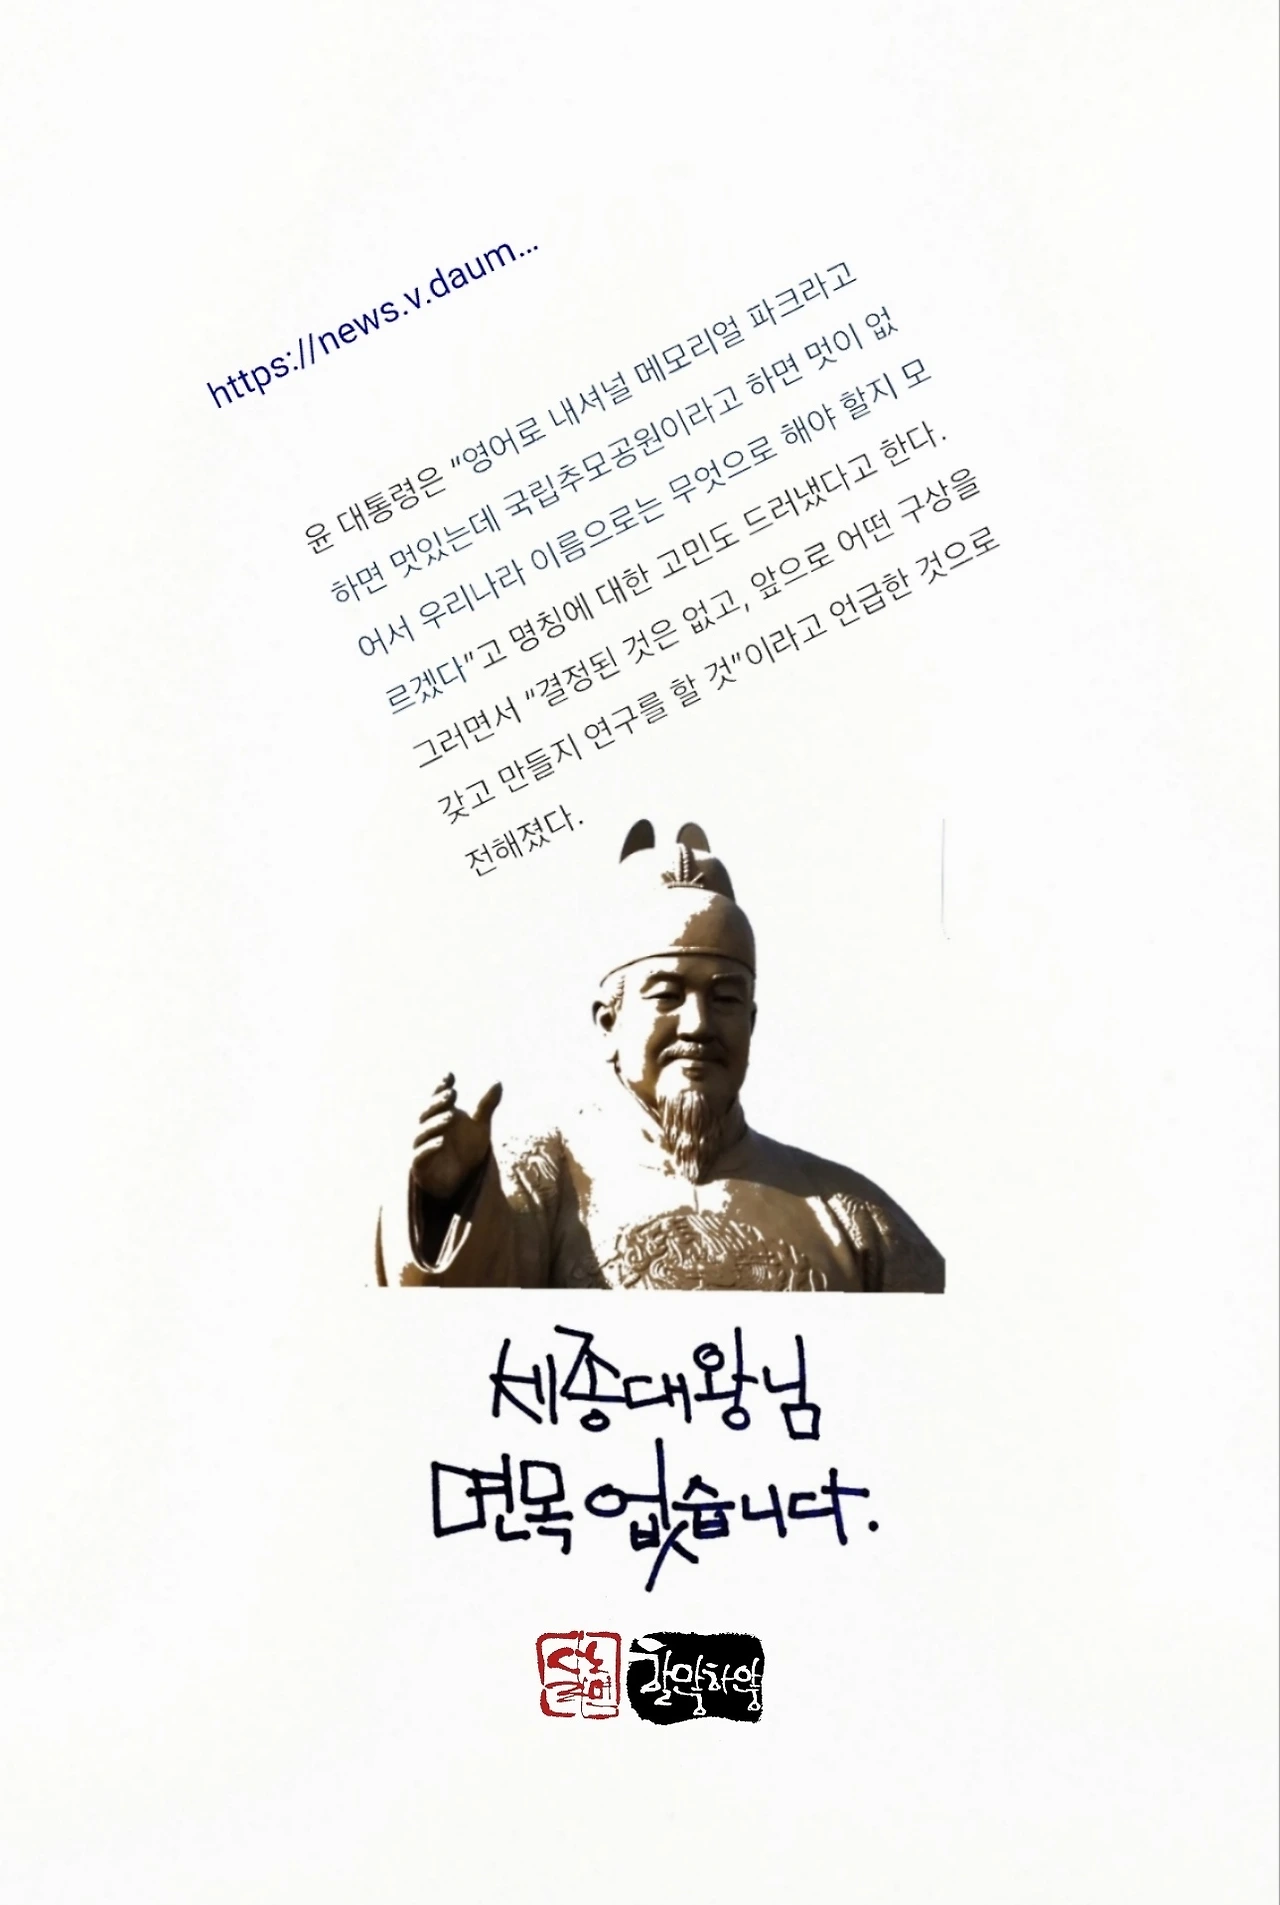 https://news.v.daum...
윤 대통령은 "영어로 내셔널 메모리얼 파크라고
하면 멋있는데 국립추모공원이라고 하면 멋이 없
어서 우리나라 이름으로는 무엇으로 해야 할지 모
르겠다"고 명칭에 대한 고민도 드러냈다고 한다.
그러면서 "결정된 것은 없고, 앞으로 어떤 구상을
갖고 만들지 연구를 할 것"이라고 언급한 것으로
전해졌다.
세종대왕님
면목 없습니다.